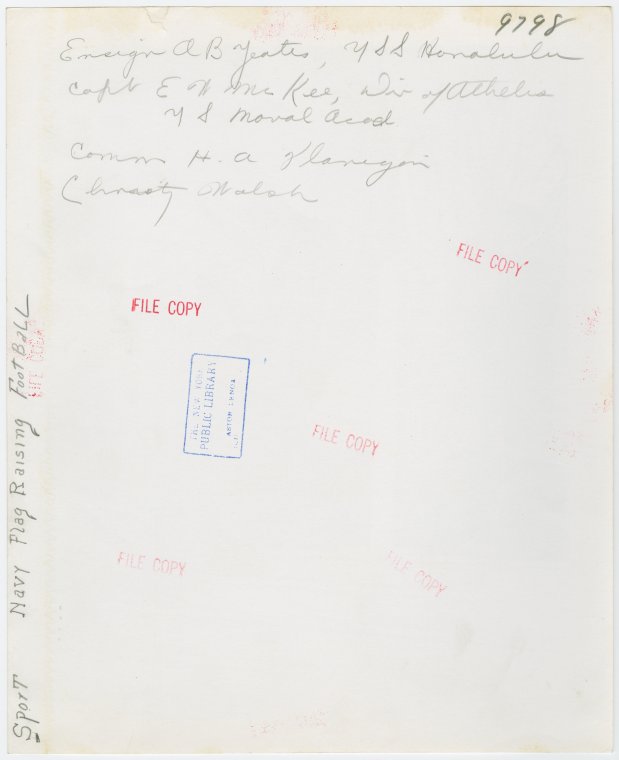 9798
Ensign A B Yeates, U S S Honolulu
Capt E W McKee, Div of Athletics
U S Naval Acad
Comm H. A Flanigan
Christy Walsh
FILE COPY
FILE COPY
THE NEW YORK
PUBLIC LIBRARY
ASTOR LENOX
FILE COPY
FILE COPY
FILE COPY
FILE COPY
Sport Navy Flag Raising FootBall